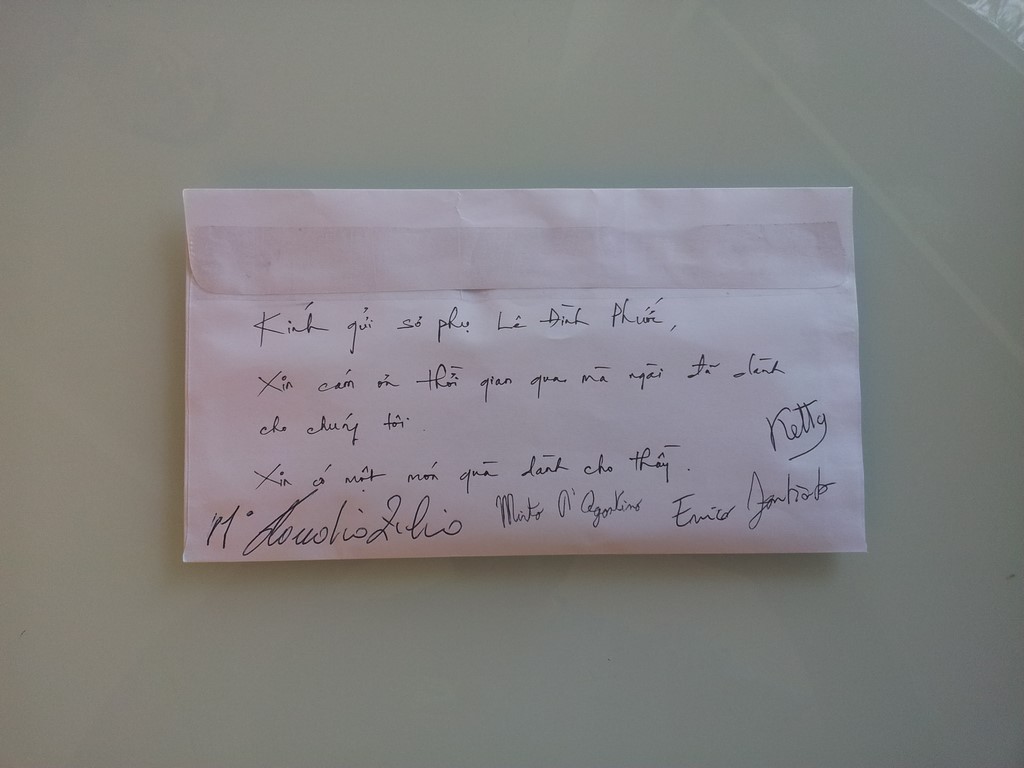 Kính gửi sư phụ Lê Đình Phước,
Xin cám ơn thời gian qua mà ngài đã dành
cho chúng tôi.
Xin có một món quà dành cho thầy.
Ketty
M° Claudio Zilio Mirto D'Agostino Enrico